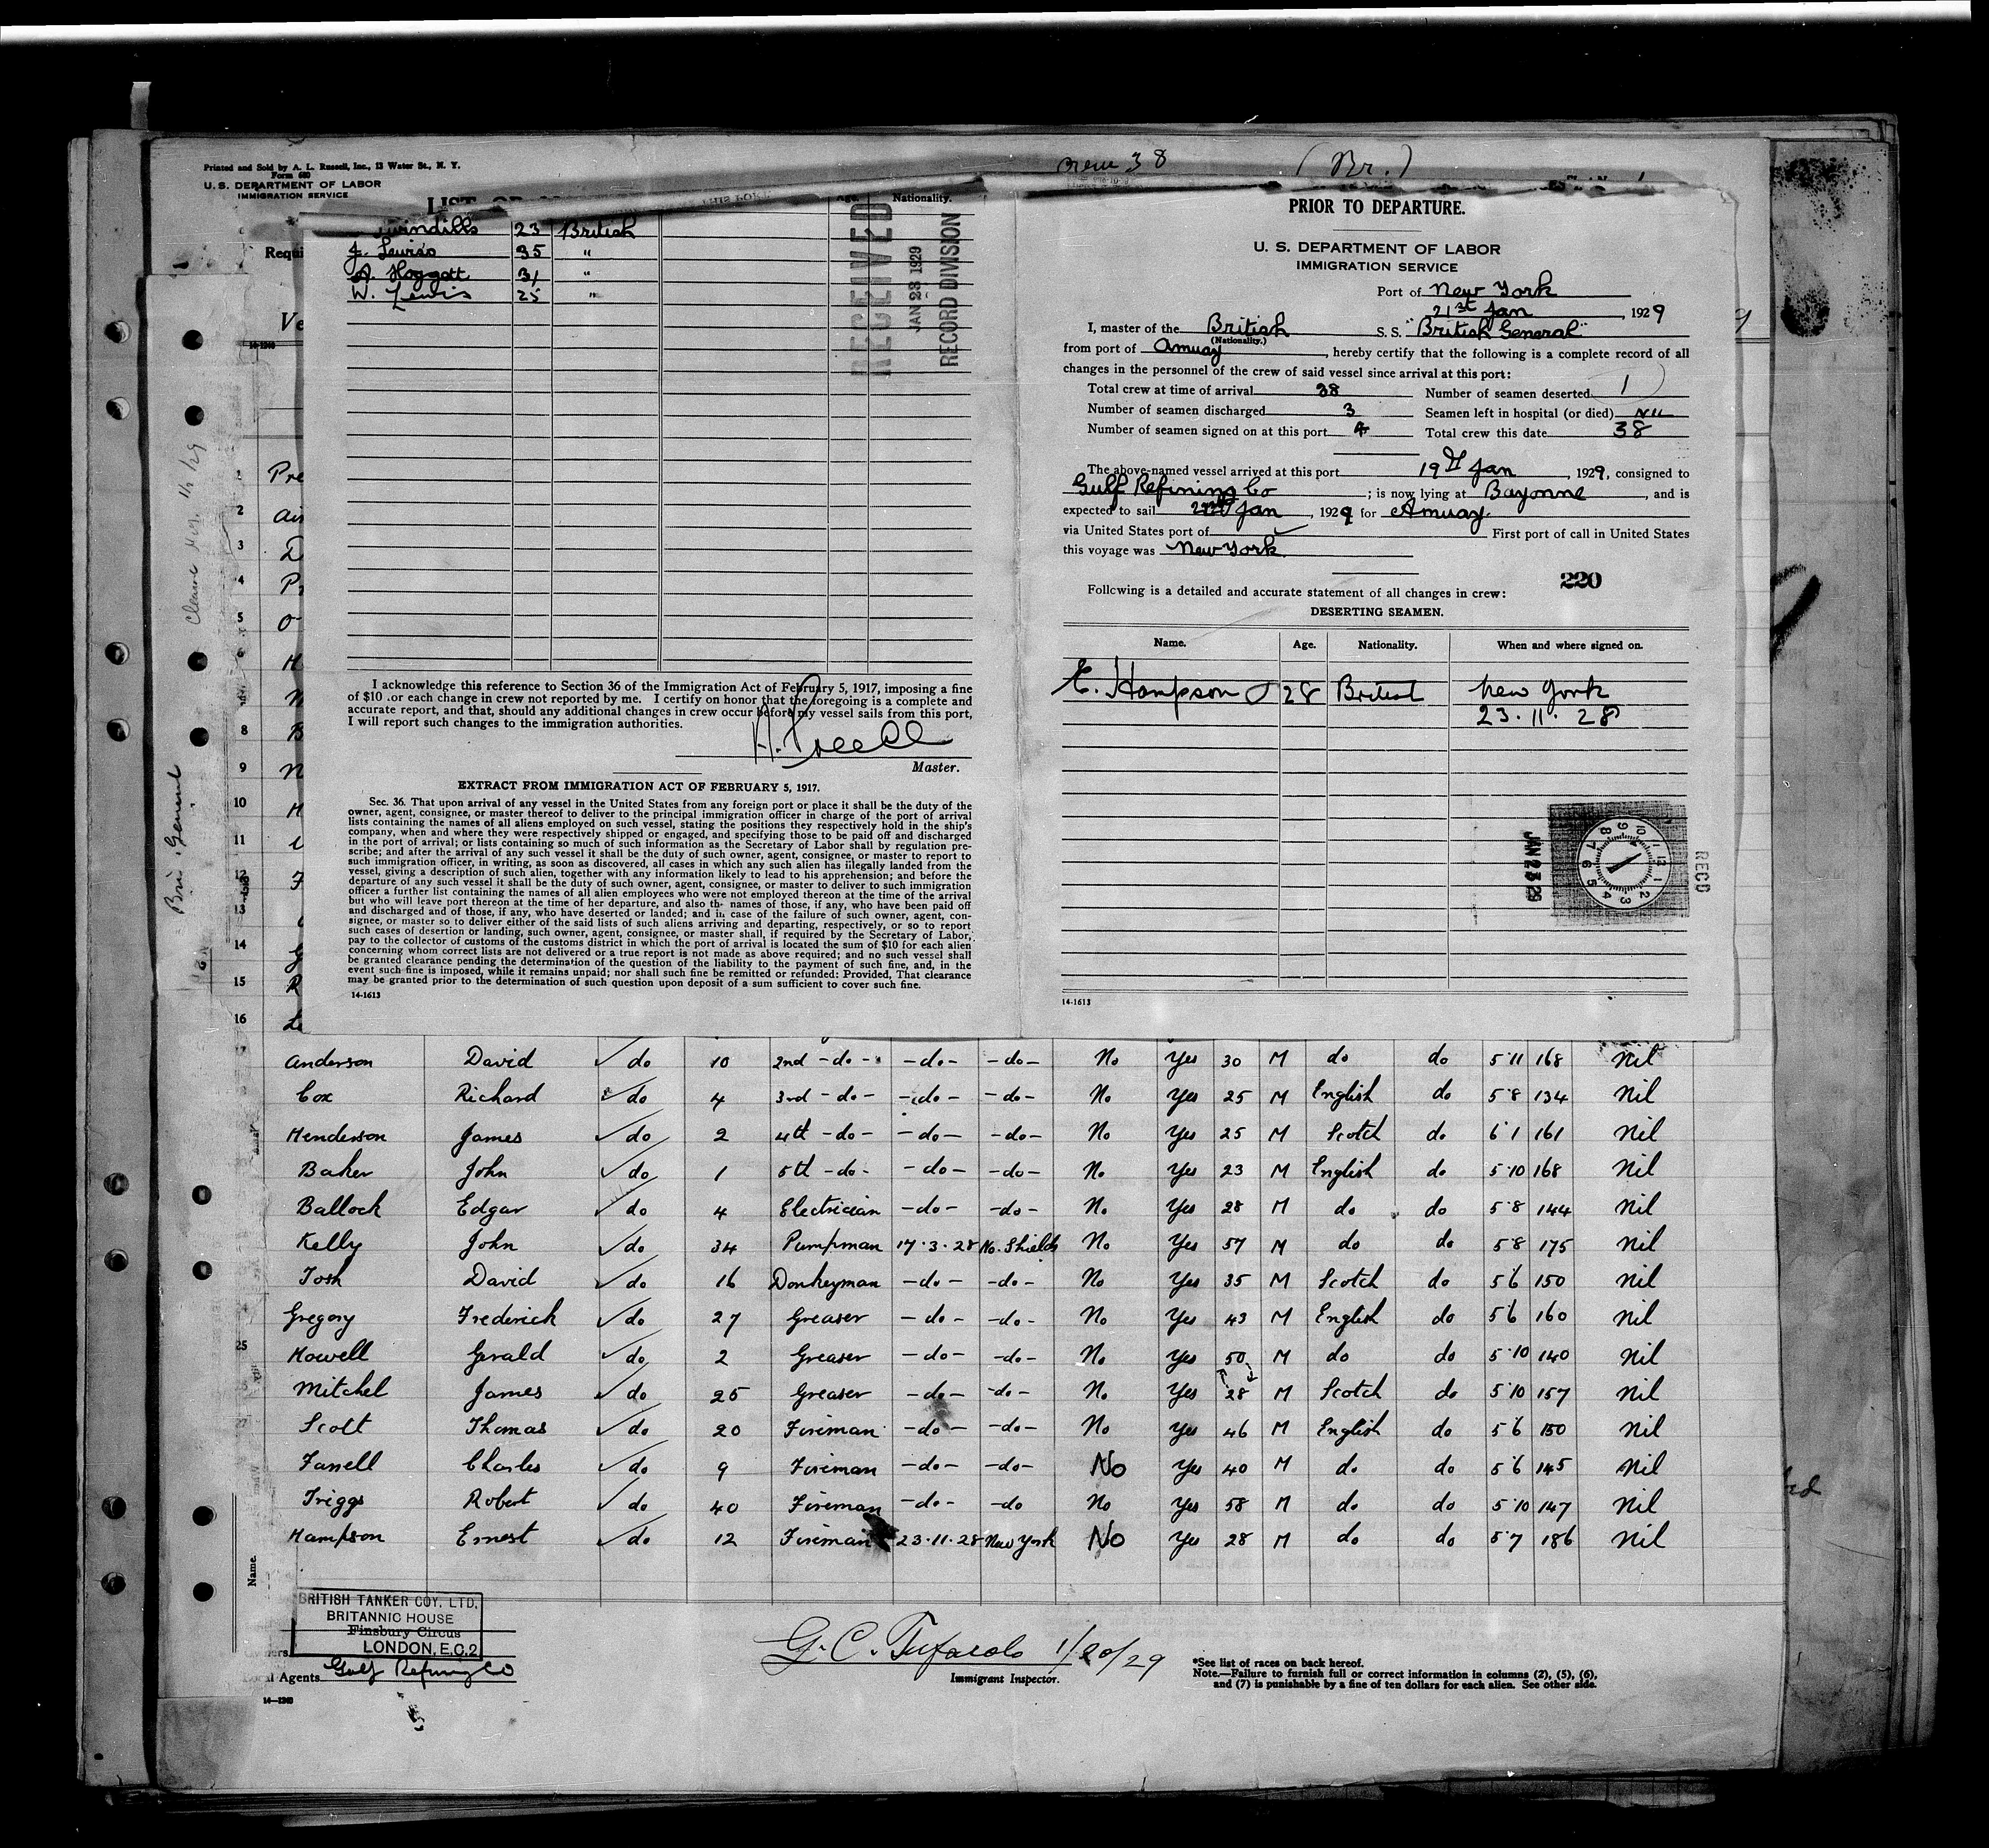 Printed and Sold by A. L. Russell, Inc., 13 Water St., N. Y.
Form 680
U. S. DEPARTMENT OF LABOR
IMMIGRATION SERVICE
Crew 38
(Br.)
LIST OF
Age.
Nationality.
23 British
J. Lewis 35 "
A. Hoggatt 31 "
W. Lewis 25 "
RECEIVED
JAN 23 1929
RECORD DIVISION
I acknowledge this reference to Section 36 of the Immigration Act of February 5, 1917, imposing a fine
of $10 for each change in crew not reported by me. I certify on honor that the foregoing is a complete and
accurate report, and that, should any additional changes in crew occur before my vessel sails from this port,
I will report such changes to the immigration authorities.
Master.
EXTRACT FROM IMMIGRATION ACT OF FEBRUARY 5, 1917.
Sec. 36. That upon arrival of any vessel in the United States from any foreign port or place it shall be the duty of the
owner, agent, consignee, or master thereof to deliver to the principal immigration officer in charge of the port of arrival
lists containing the names of all aliens employed on such vessel, stating the positions they respectively hold in the ship's
company, when and where they were respectively shipped or engaged, and specifying those to be paid off and discharged
in the port of arrival; or lists containing so much of such information as the Secretary of Labor shall by regulation pre-
scribe; and after the arrival of any such vessel it shall be the duty of such owner, agent, consignee, or master to report to
such immigration officer, in writing, as soon as discovered, all cases in which any such alien has illegally landed from the
vessel, giving a description of such alien, together with any information likely to lead to his apprehension; and before the
departure of any such vessel it shall be the duty of such owner, agent, consignee, or master to deliver to such immigration
officer a further list containing the names of all alien employees who were not employed thereon at the time of the arrival
but who will leave port thereon at the time of her departure, and also the names of those, if any, who have been paid off
and discharged and of those, if any, who have deserted or landed; and in case of the failure of such owner, agent, con-
signee, or master so to deliver either of the said lists of such aliens arriving and departing, respectively, or so to report
such cases of desertion or landing, such owner, agent, consignee, or master shall, if required by the Secretary of Labor,
pay to the collector of customs of the customs district in which the port of arrival is located the sum of $10 for each alien
concerning whom correct lists are not delivered or a true report is not made as above required; and no such vessel shall
be granted clearance pending the determination of the question of the liability to the payment of such fine, and, in the
event such fine is imposed, while it remains unpaid; nor shall such fine be remitted or refunded: Provided, That clearance
may be granted prior to the determination of such question upon deposit of a sum sufficient to cover such fine.
14-1613
PRIOR TO DEPARTURE.
U. S. DEPARTMENT OF LABOR
IMMIGRATION SERVICE
Port of New York
21st Jan, 1929
I, master of the British S. S. "British General"
(Nationality.)
from port of Amuay, hereby certify that the following is a complete record of all
changes in the personnel of the crew of said vessel since arrival at this port:
Total crew at time of arrival 38 Number of seamen deserted 1
Number of seamen discharged 3 Seamen left in hospital (or died) Nil
Number of seamen signed on at this port 4 Total crew this date 38
The above-named vessel arrived at this port 19th Jan, 1929, consigned to
Gulf Refining Co; is now lying at Bayonne, and is
expected to sail 22nd Jan, 1929 for Amuay.
via United States port of First port of call in United States
this voyage was New York.
220
Following is a detailed and accurate statement of all changes in crew:
DESERTING SEAMEN.
Name. Age. Nationality. When and where signed on.
E. Hampson 28 British New York
23.11.28
JAN 23 29
RECD
14-1613
Anderson David do 10 2nd -do- -do- -do- No Yes 30 M do do 5'11 168 Nil
Cox Richard do 4 3rd -do- -do- -do- No Yes 25 M English do 5'8 134 Nil
Henderson James do 2 4th -do- -do- -do- No Yes 25 M Scotch do 6'1 161 Nil
Baker John do 1 5th -do- -do- -do- No Yes 23 M English do 5'10 168 Nil
Ballock Edgar do 4 Electrician -do- -do- No Yes 28 M do do 5'8 144 Nil
Kelly John do 34 Pumpman 17.3.28 No. Shields No Yes 57 M do do 5'8 175 Nil
Tosh David do 16 Donkeyman -do- -do- No Yes 35 M Scotch do 5'6 150 Nil
Gregory Frederick do 27 Greaser -do- -do- No Yes 43 M English do 5'6 160 Nil
25 Howell Gerald do 2 Greaser -do- -do- No Yes 50 M do do 5'10 140 Nil
Mitchel James do 25 Greaser -do- -do- No Yes 28 M Scotch do 5'10 157 Nil
27 Scott Thomas do 20 Fireman -do- -do- No Yes 46 M English do 5'6 150 Nil
Fanell Charles do 9 Fireman -do- -do- No Yes 40 M do do 5'6 145 Nil
Triggs Robert do 40 Fireman -do- -do No Yes 58 M do do 5'10 147 Nil
Hampson Ernest do 12 Fireman 23.11.28 New York No Yes 28 M do do 5'7 186 Nil
BRITISH TANKER COY. LTD.
BRITANNIC HOUSE
Finsbury Circus
LONDON, E.C.2
Agents Gulf Refining Co
14-1240
1/20/29
Immigrant Inspector.
*See list of races on back hereof.
Note.—Failure to furnish full or correct information in columns (2), (5), (6),
and (7) is punishable by a fine of ten dollars for each alien. See other side.